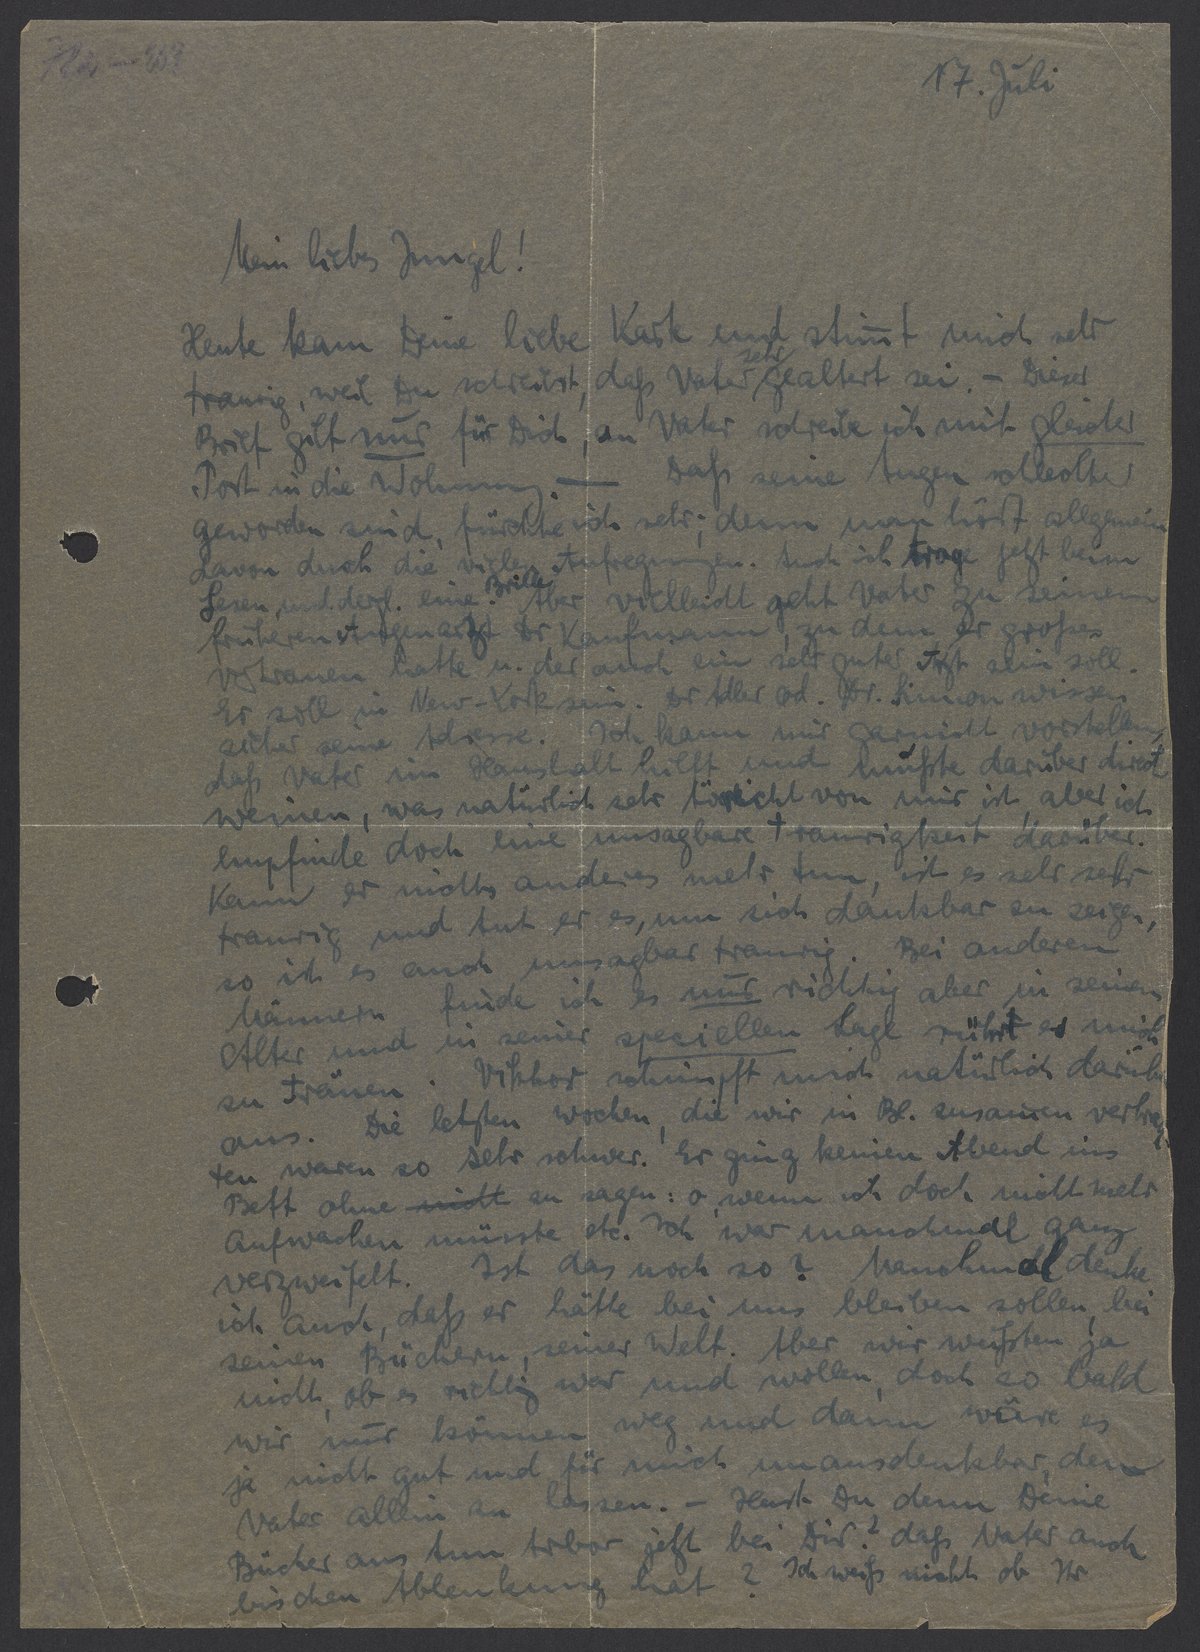 17. Juli
Mein liebes Jungel!
Heute kam Deine liebe Karte und stim̅t mich sehr
traurig, weil Du schreibst, daß Vater sehr gealtert sei. – Dieser
Brief gilt nur für Dich, an Vater schreibe ich mit gleicher
Post in die Wohnung. — Daß seine Augen schlechter
geworden sind, fürchte ich sehr; denn man hört allgemein
davon durch die vielen Aufregungen. Auch ich trage jetzt beim
Lesen und dergl. eine Brille. Aber vielleicht geht Vater zu seinem
früheren Augenarzt Dr Kaufmann, zu dem er großes
Vertrauen hatte u. der auch ein sehr guter Arzt sein soll.
Er soll in New-York sein. Dr Adler od. Dr. Simon wissen
sicher seine Adresse. Ich kann mir garnicht vorstellen,
daß Vater im Haushalt hilft und mußte darüber direct
weinen, was natürlich sehr töricht von mir ist, aber ich
empfinde doch eine unsagbare Traurigkeit darüber.
Kann er nichts anderes mehr tun, ist es sehr sehr
traurig und tut er es, um sich dankbar zu zeigen,
so ist es auch unsagbar traurig. Bei anderen
Männern finde ich es nur richtig aber in seinem
Alter und in seiner speciellen Lage rührt es mich
zu Tränen. Viktor schimpft mich natürlich darüber
aus. Die letzten Wochen, die wir in Bl. zusam̅en verbrach
ten waren so sehr schwer. Er ging keinen Abend ins
Bett ohne nicht zu sagen: o, wenn ich doch nicht mehr
Aufwachen müsste etc. Ich war manchmal ganz
verzweifelt. Ist das noch so? Manchmal denke
ich auch, daß er hätte bei uns bleiben sollen, bei
seinen Büchern, seiner Welt. Aber wir wußten ja
nicht, ob es richtig war und wollen, doch so bald
wir nur können weg und dann wäre es
ja nicht gut und für mich unausdenkbar, den
Vater allein zu lassen. – Hast Du denn Deine
Bücher aus Ann Arbor jetzt bei Dir? daß Vater auch
bischen Ablenkung hat? Ich weiß nicht ob Ihr